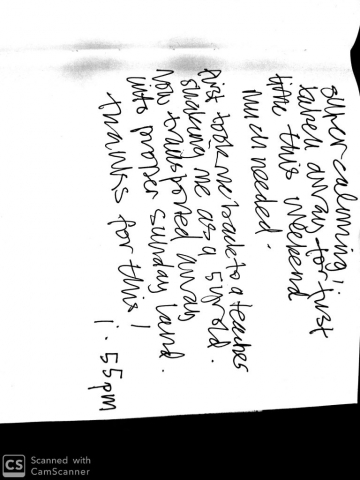 super calming,
taken away for first
time this weekend
Much needed.
first took me back to a teacher
shushing me as a 5 yr old.
Now transported away
into proper sunday land.
thanks for this!
1.55pm
CS Scanned with
CamScanner